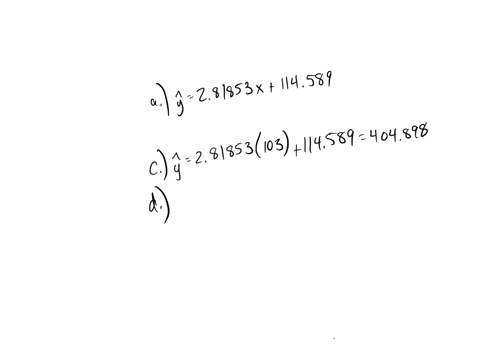 a.) ŷ = 2.81853x + 114.589
c.) ŷ = 2.81853(103) + 114.589 = 404.898
d.)